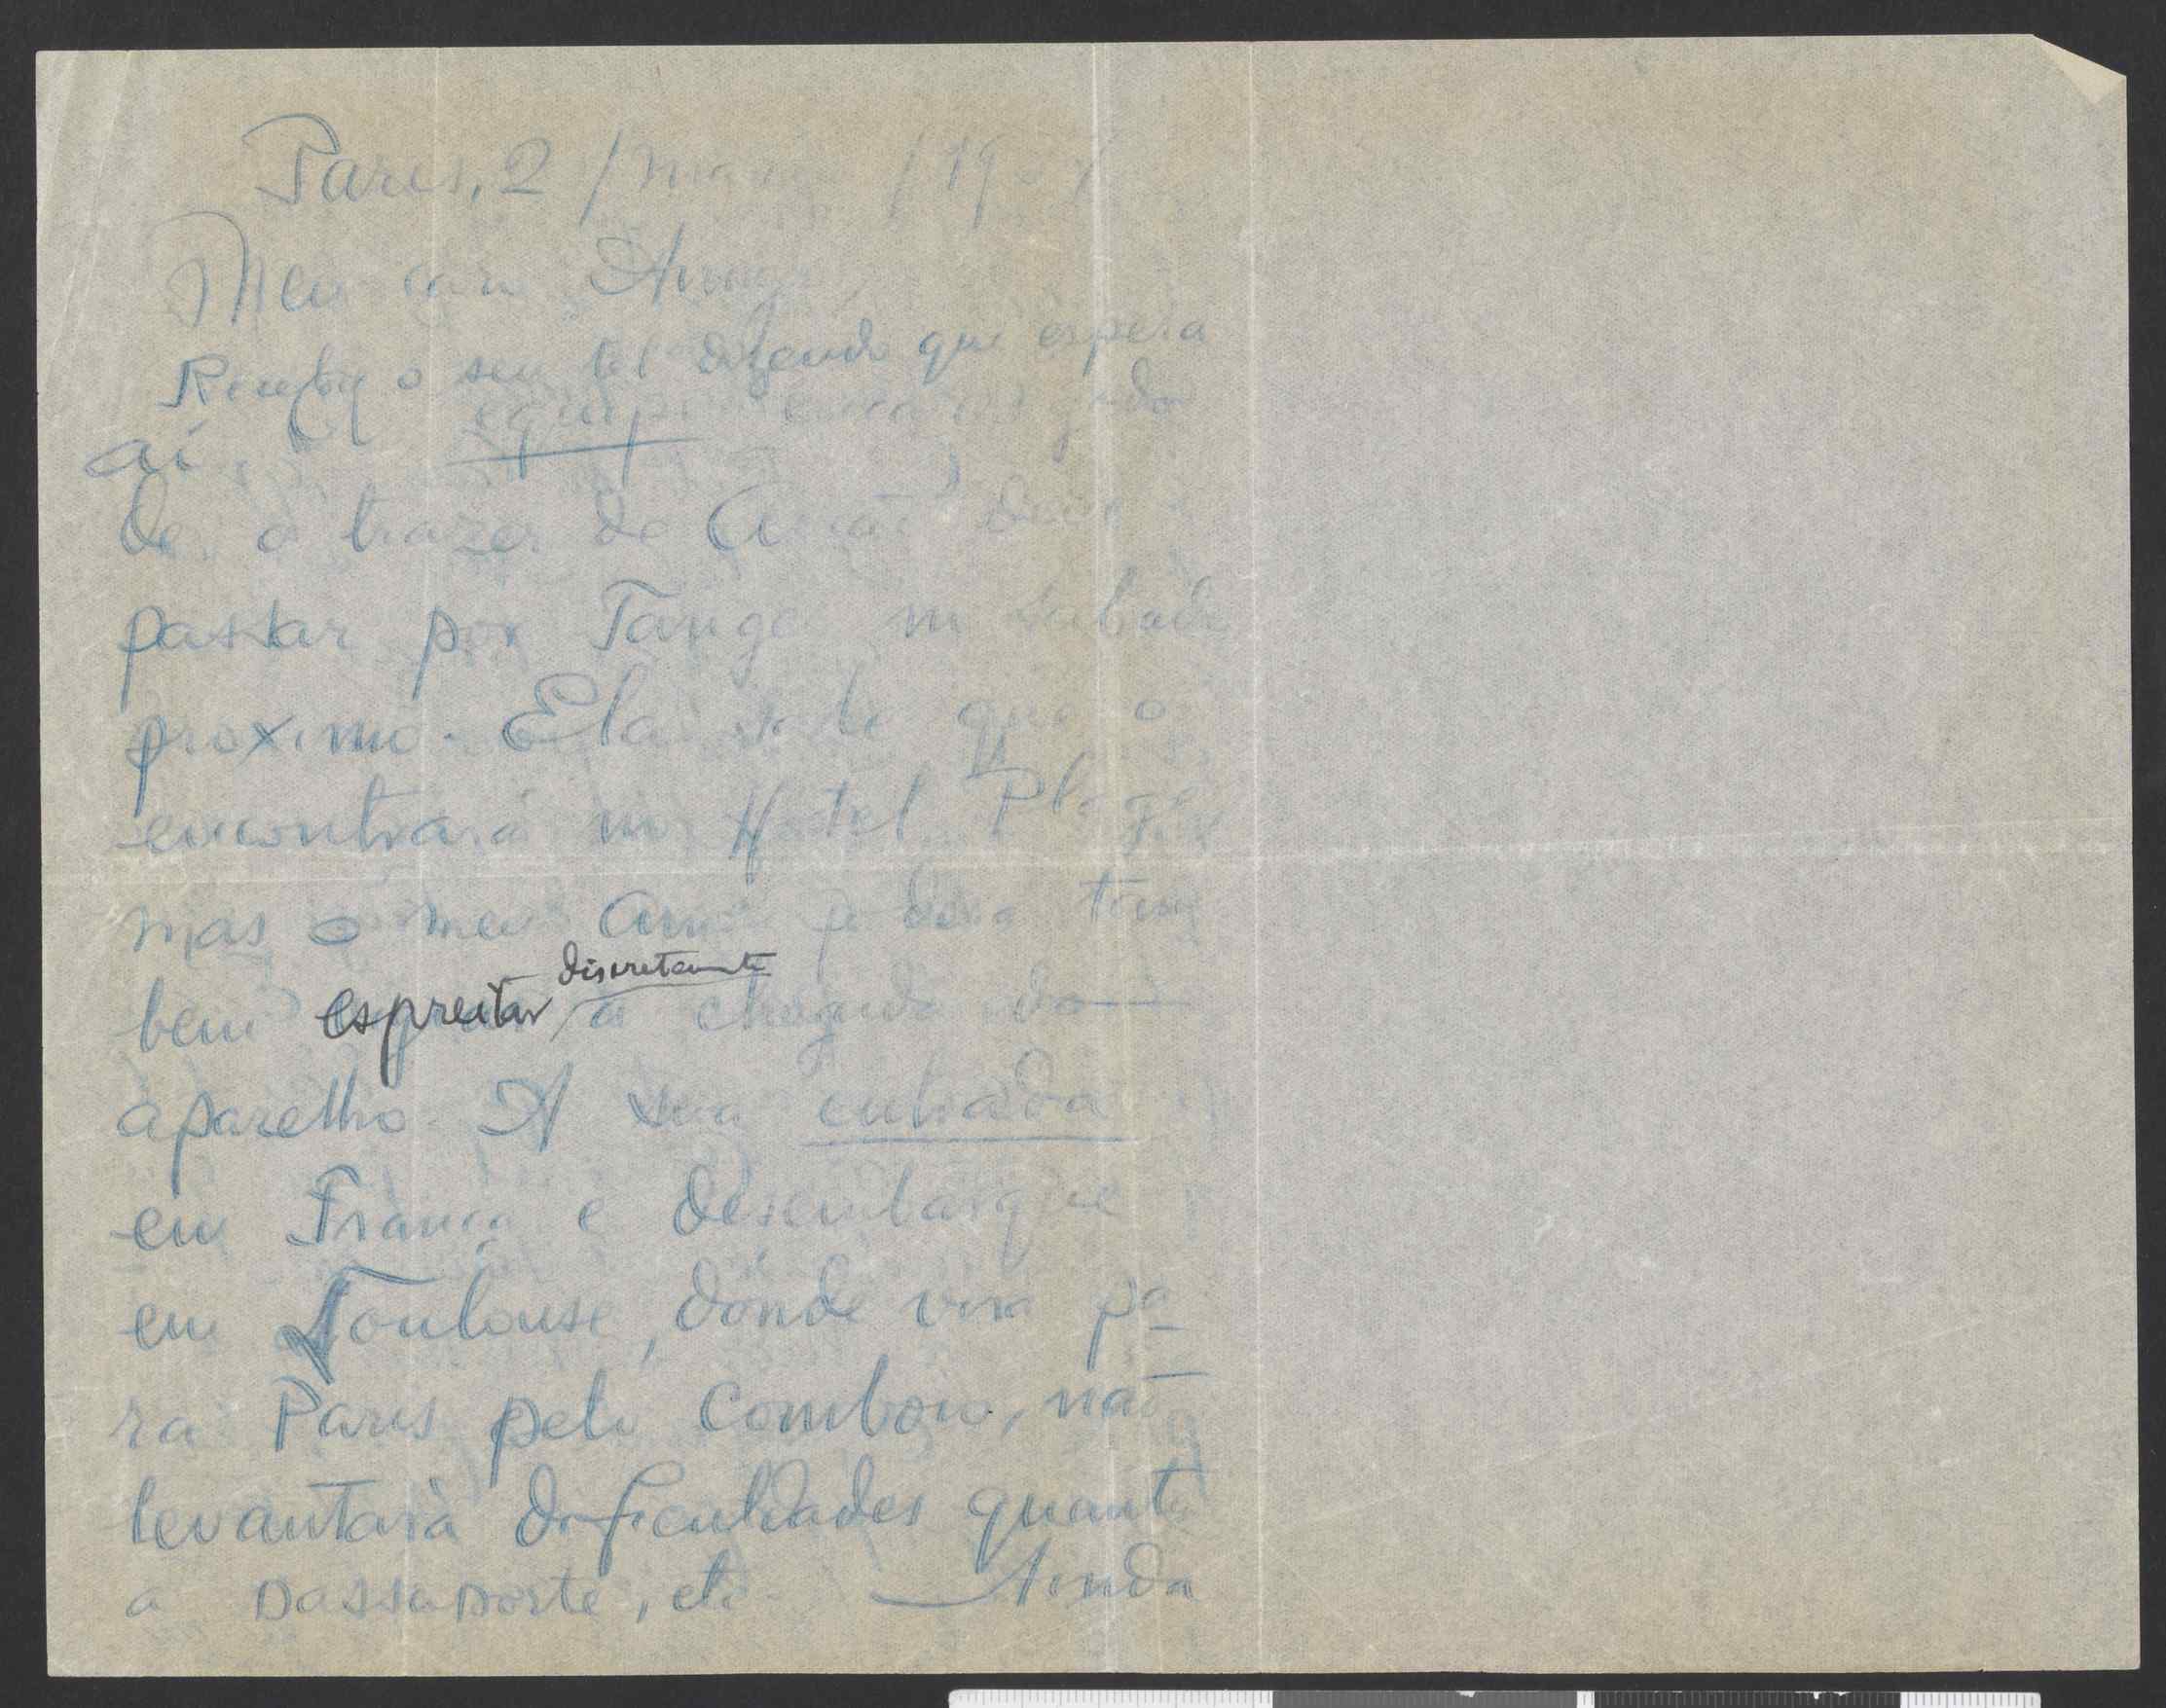 Paris, 2 /março /19
Meu caro Amigo,
Recebi o seu tel dizendo que espera
aí. A equipe encarregada
de o trazer de Avião deve
passar por Tanger no sabado
proximo. Ela sabe que o
encontrará no Hotel Plage
mas o meu Amº poderá tam
bem espreitar discretamente a chegada do
aparelho. A sua entrada
em França e desembarque
em Toulouse, donde virá pa-
ra Paris pelo comboio, não
levantará dificuldades quanto
a passaporte, etc. Ainda